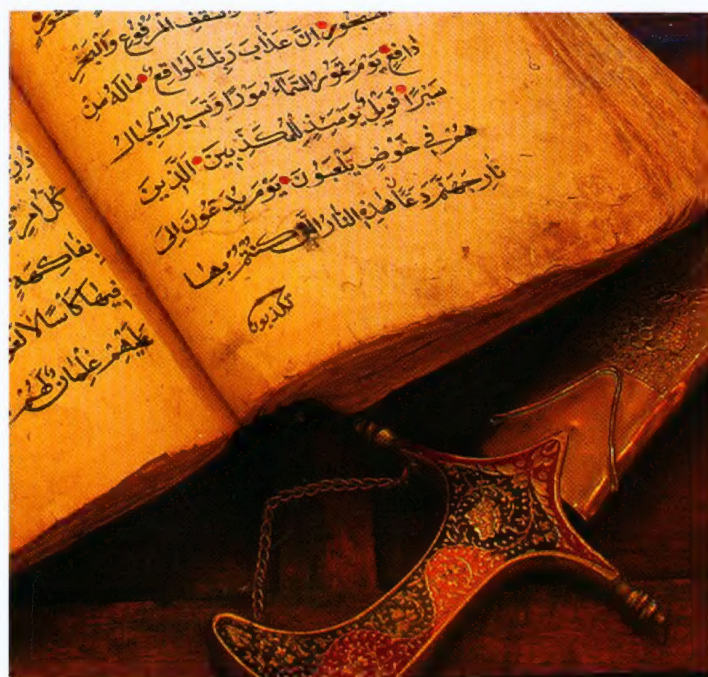 وَالسَّقْفِ المَرْفُوعِ وَالْبَحْرِ
المَسْجُورِ اِنَّ عَذَابَ رَبِّكَ لَوَاقِعٌ مَالَهُ مِنْ
دَافِعٍ يَوْمَ تَمُورُ السَّمَآءُ مَوْرًا وَتَسِيرُ الْجِبَالُ
سَيْرًا فَوَيْلٌ يَوْمَئِذٍ لِلْمُكَذِّبِينَ الَّذِينَ
هُمْ فِي خَوْضٍ يَلْعَبُونَ يَوْمَ يُدَعُّونَ اِلَى
نَارِ جَهَنَّمَ دَعًّا هَذِهِ النَّارُ الَّتِي كُنْتُمْ بِهَا
تكذبون
كُلُّ
بِفَاكِهَةٍ
فِيهَا كَأْسًا لَا
عَلَيْهِمْ غِلْمَانٌ لَهُمْ